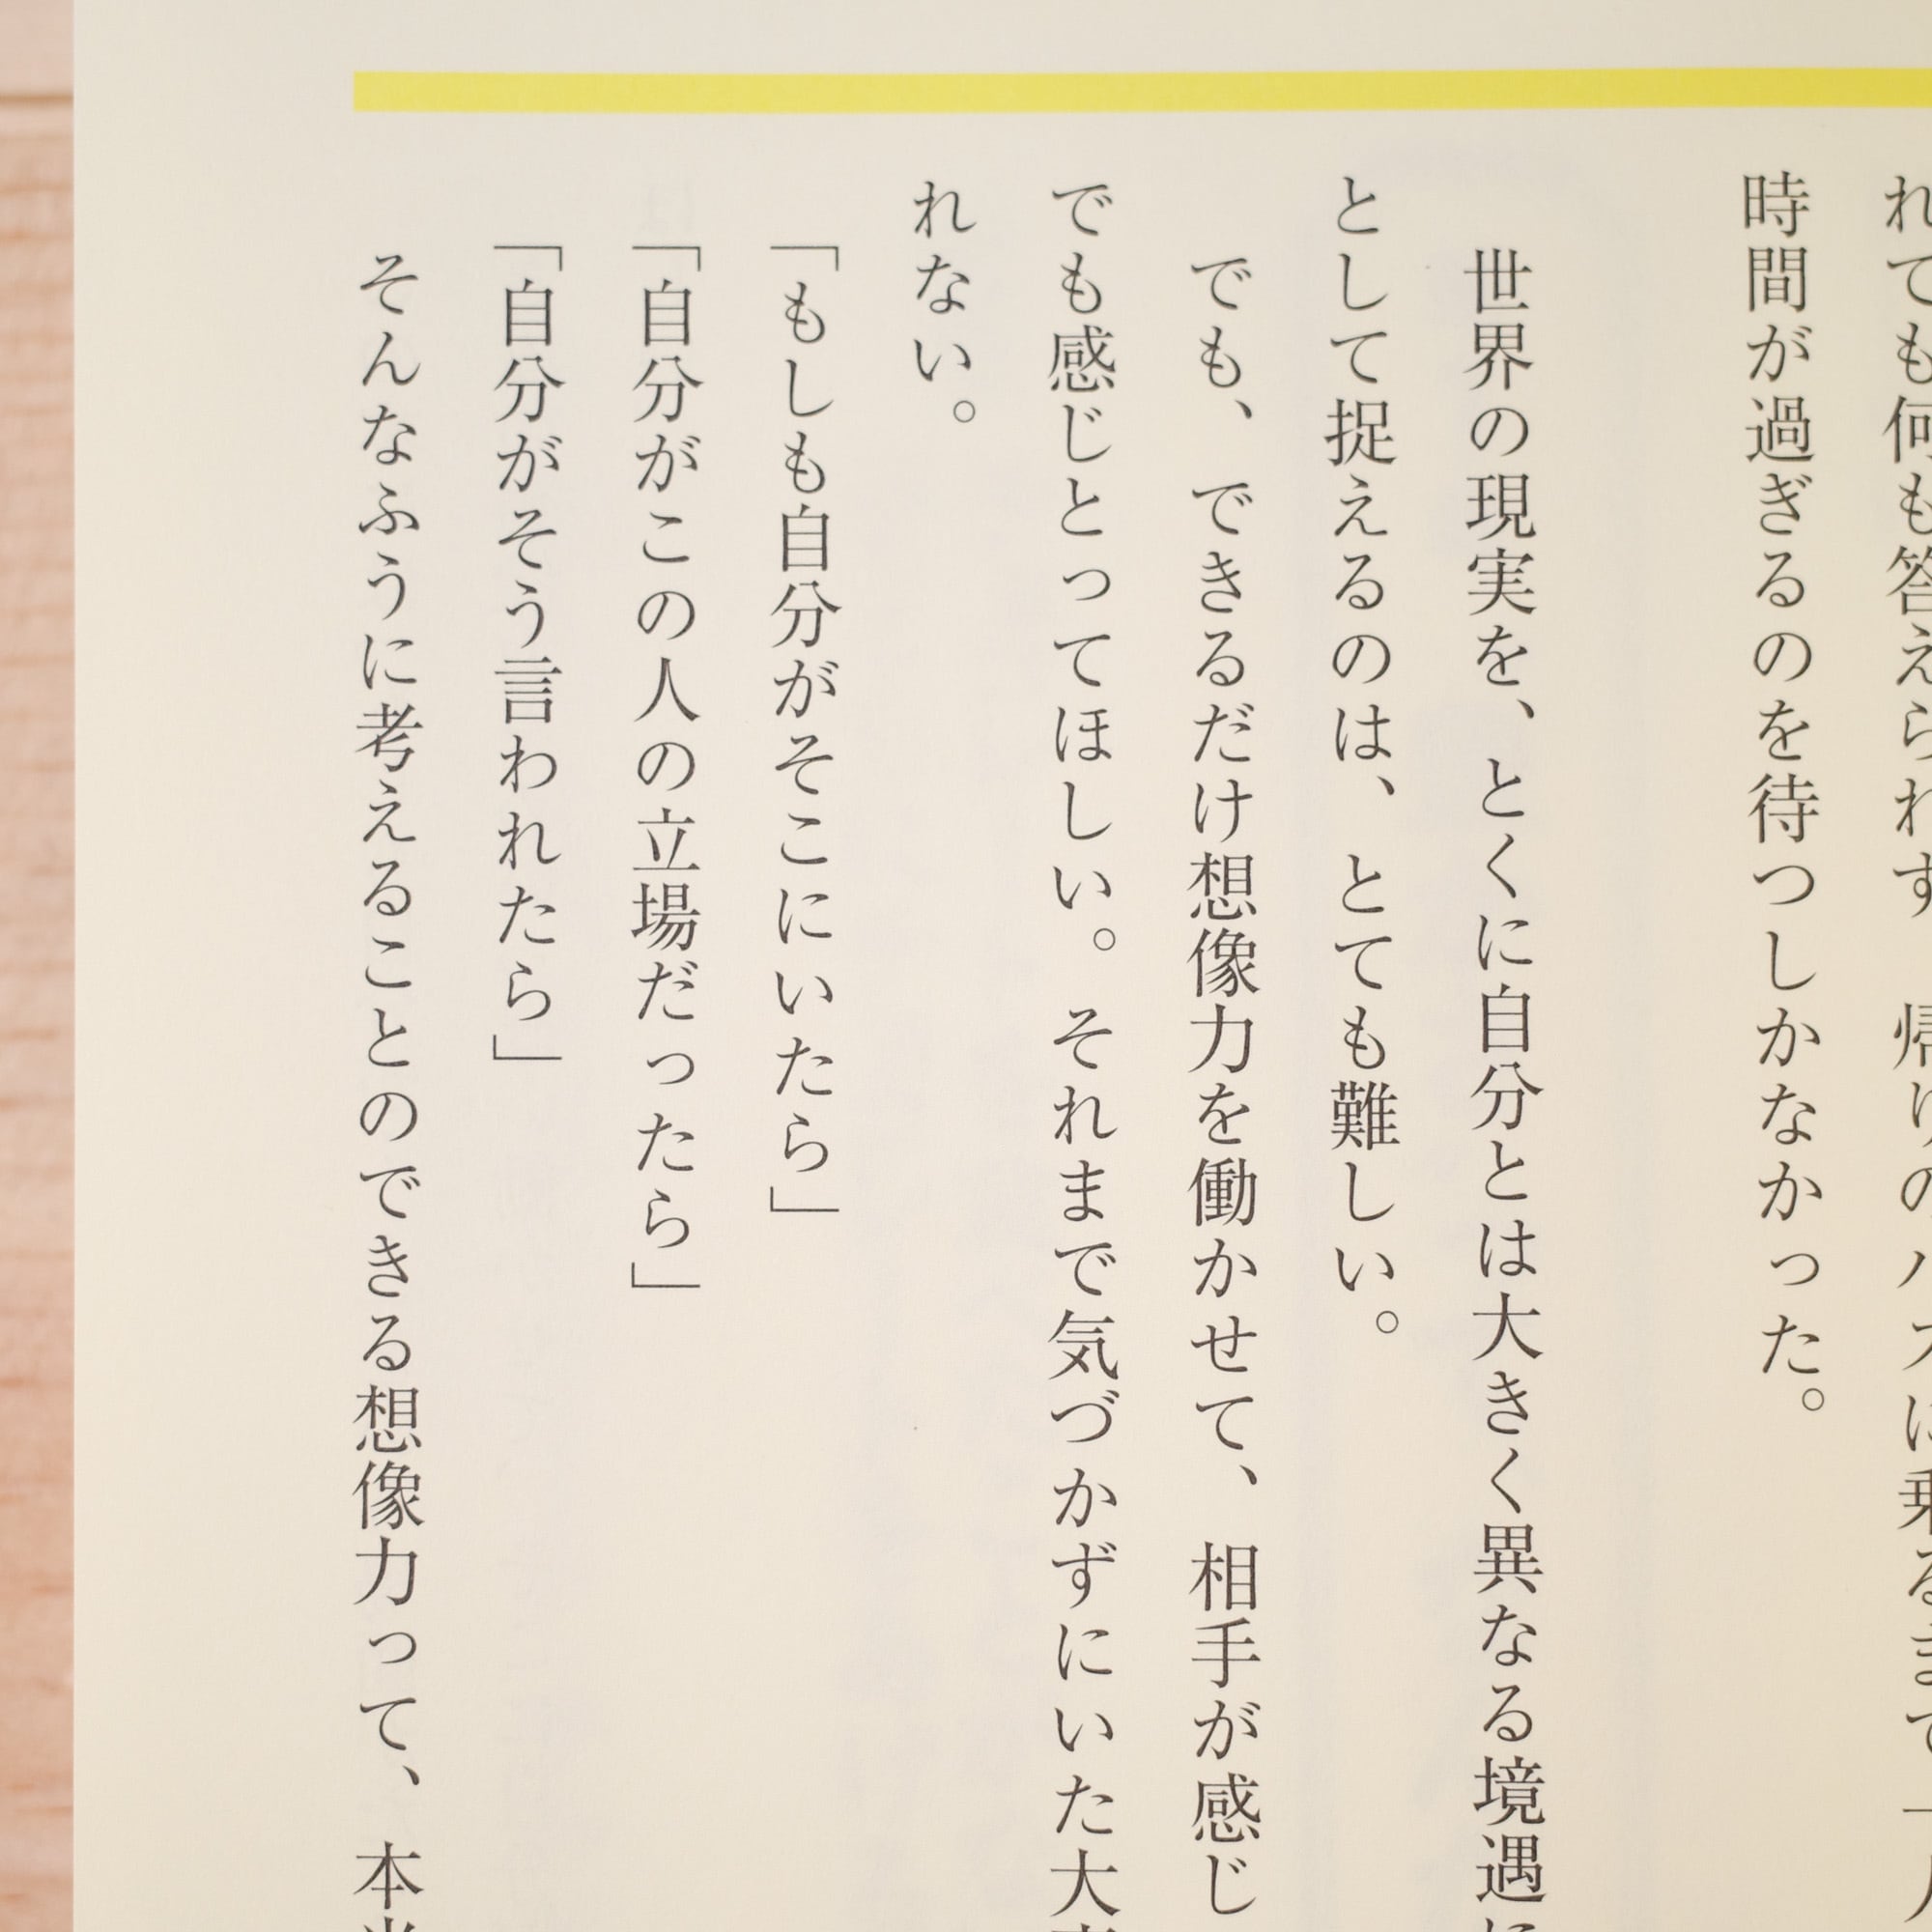 れても何も答えられず　帰りのバスに乗るまで　一人
時間が過ぎるのを待つしかなかった。
世界の現実を、とくに自分とは大きく異なる境遇に
として捉えるのは、とても難しい。
でも、できるだけ想像力を働かせて、相手が感じ
でも感じとってほしい。それまで気づかずにいた大
れない。
「もしも自分がそこにいたら」
「自分がこの人の立場だったら」
「自分がそう言われたら」
そんなふうに考えることのできる想像力って、本